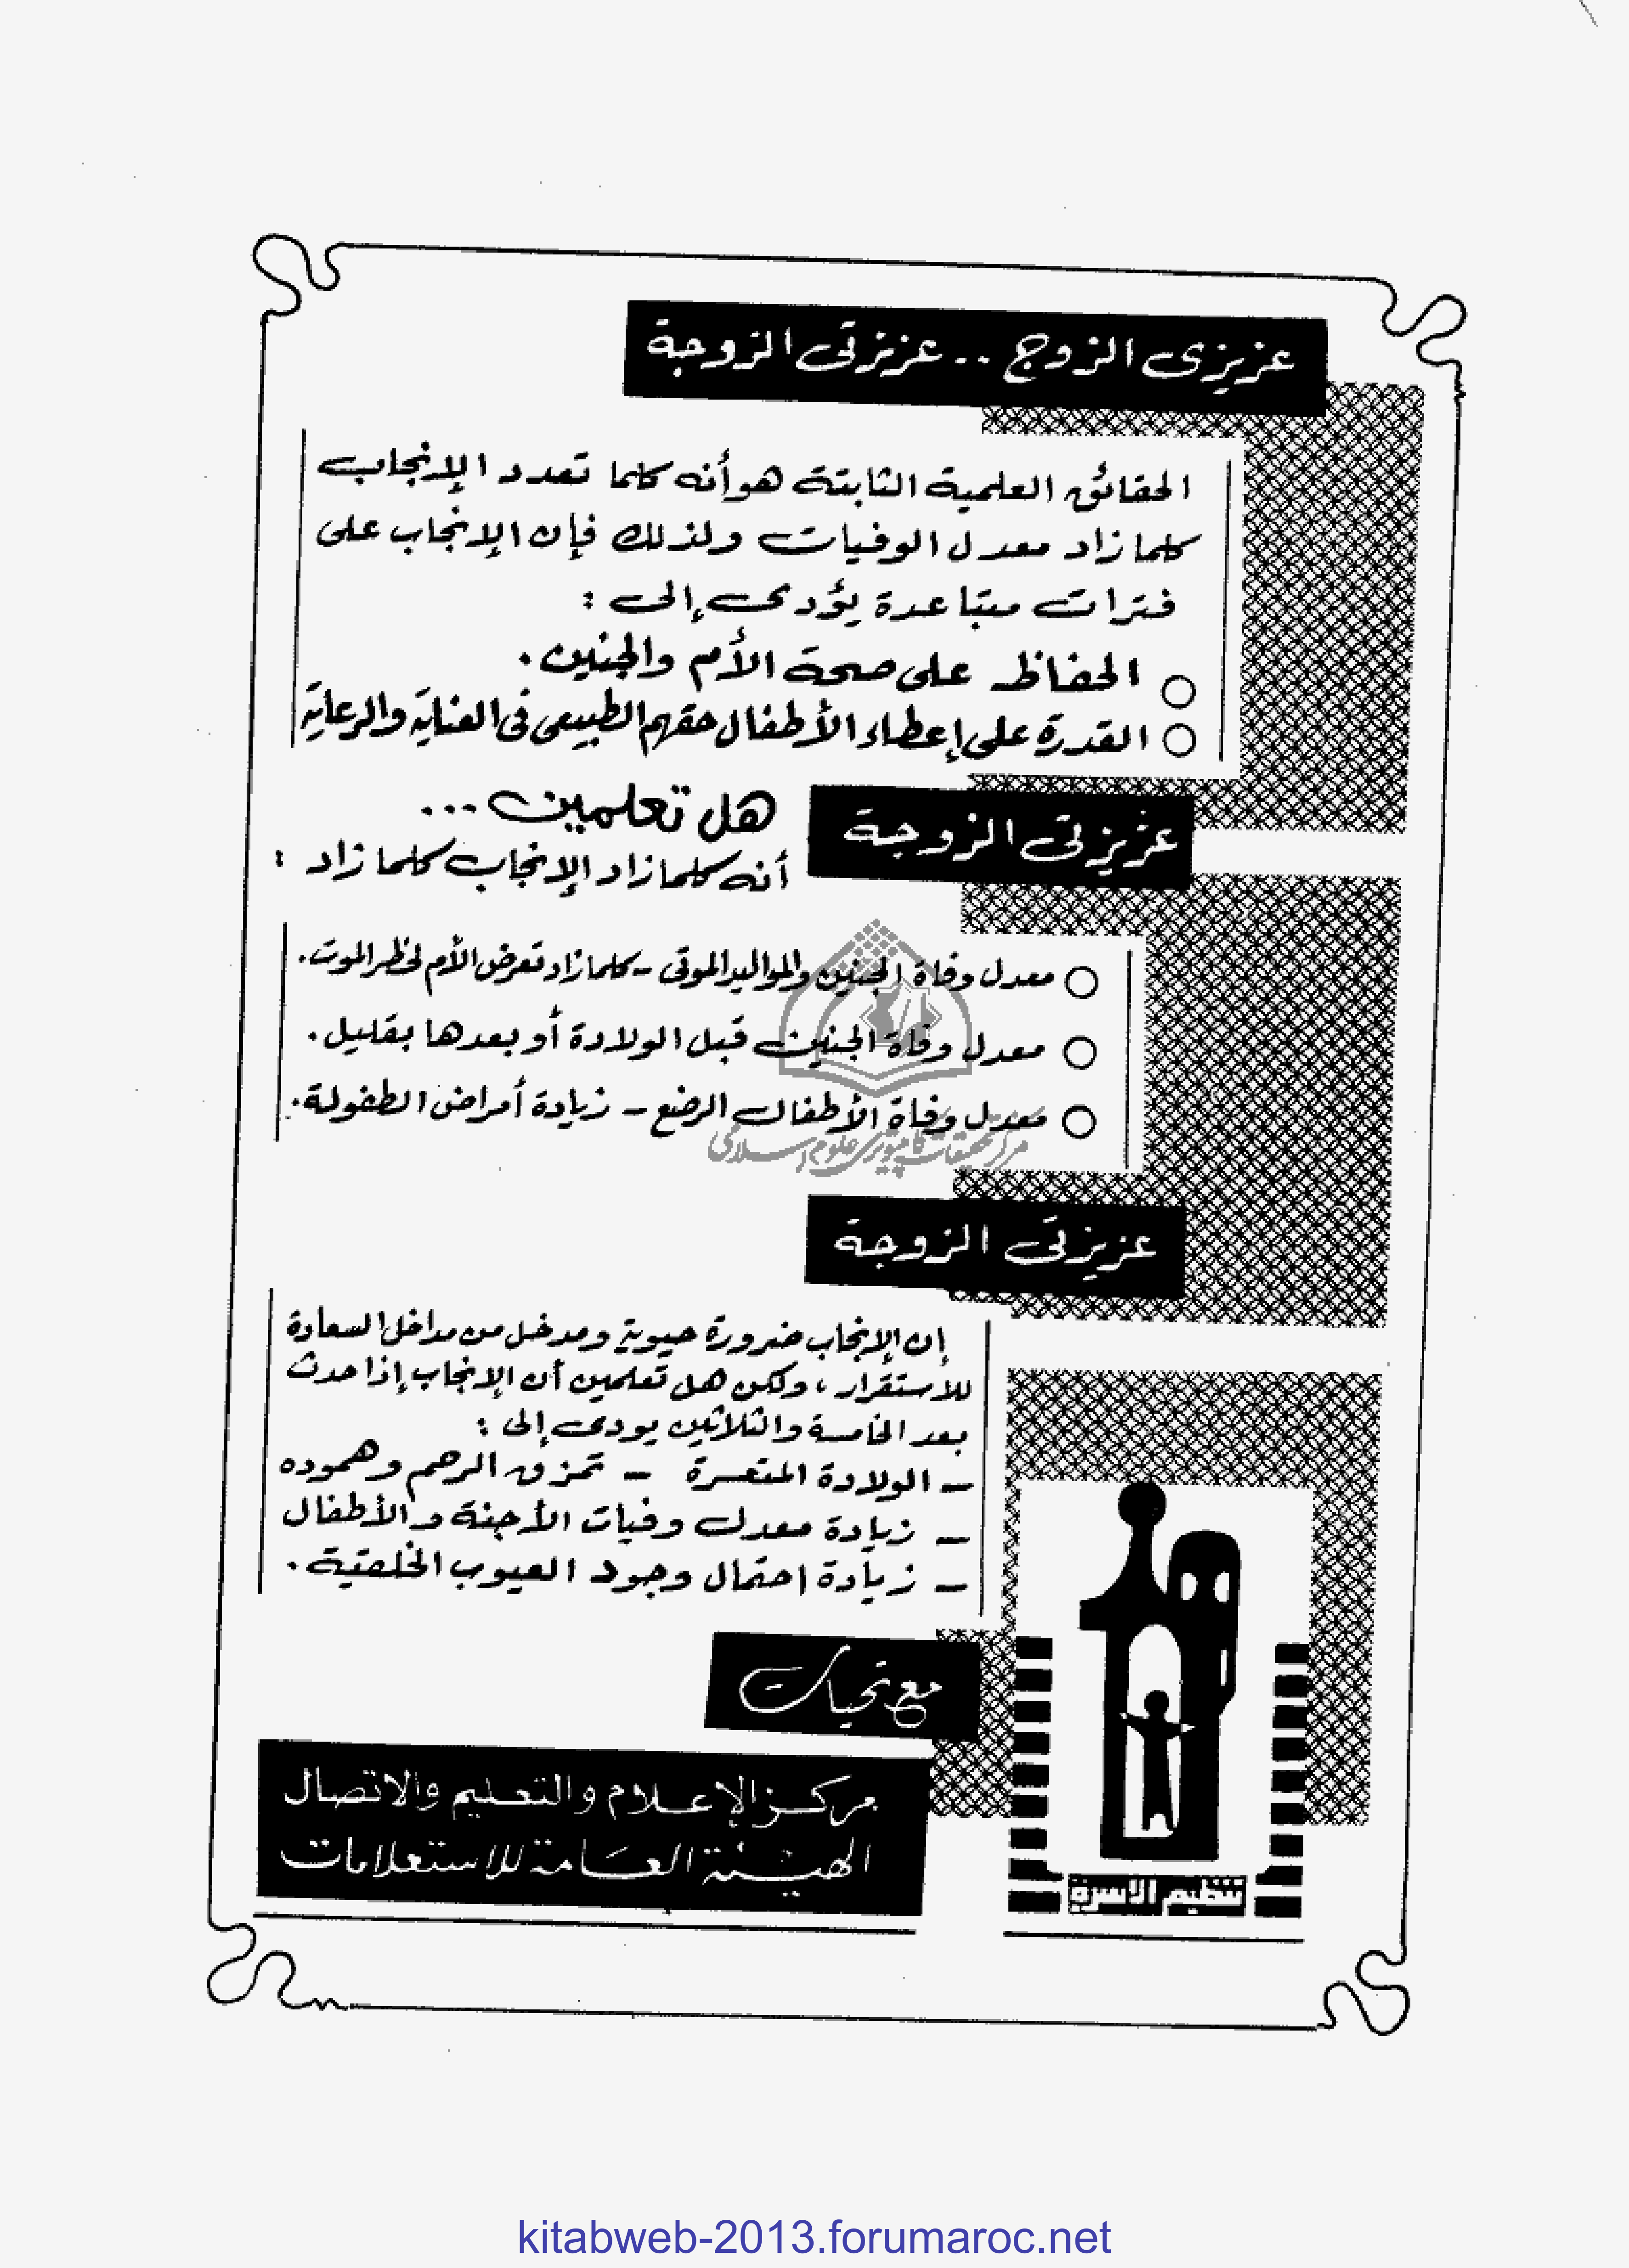 عزيزى الزوج .. عزيزتى الزوجة
الحقائق العلمية الثابتة هو أنه كلما تعدد الإنجاب
كلما زاد معدل الوفيات ولذلك فإن الإنجاب على
فترات متباعدة يؤدى إلى :
○ الحفاظ على صحة الأم والجنين .
○ القدرة على إعطاء الأطفال حقهم الطبيعى فى العناية والرعاية
عزيزتى الزوجة
هل تعلمين ...
أنه كلما زاد الإنجاب كلما زاد :
○ معدل وفاة الجنين والمواليد الموتى - كلما زاد تعرض الأم لخطر الموت .
○ معدل وفاة الجنين قبل الولادة أو بعدها بقليل .
○ معدل وفاة الأطفال الرضع - زيادة أمراض الطفولة .
مركز تحقيقات كامپيوتری علوم اسلامی
عزيزتى الزوجة
إن الإنجاب ضرورة حيوية ومدخل من مداخل السعادة
للاستقرار ، ولكن هل تعلمين أن الإنجاب إذا حدث
بعد الخامسة والثلاثين يودى إلى :
- الولادة المتعسرة - تمزق الرحم وهموده
- زيادة معدل وفيات الأجنة والأطفال
- زيادة احتمال وجود العيوب الخلقية .
مع تحيات
مركز الإعلام والتعليم والاتصال
الهيئة العامة للاستعلامات
تنظيم الأسرة
kitabweb-2013.forumaroc.net